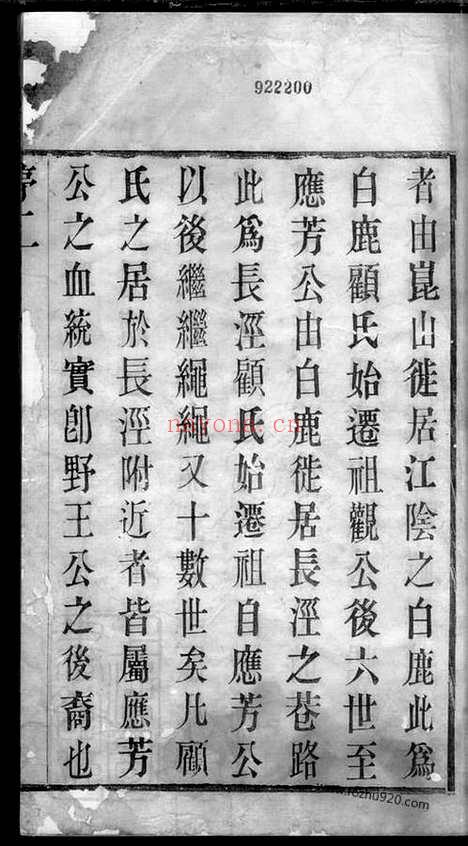 922200
者由崑山徙居江陰之白鹿此爲
白鹿顧氏始遷祖觀公後六世至
應芳公由白鹿徙居長涇之巷路
此爲長涇顧氏始遷祖自應芳公
以後繼繼繩繩又十數世矣凡顧
氏之居於長涇附近者皆屬應芳
公之血統實卽野王公之後裔也
序二
nayona.cn
www.rozhu920.com